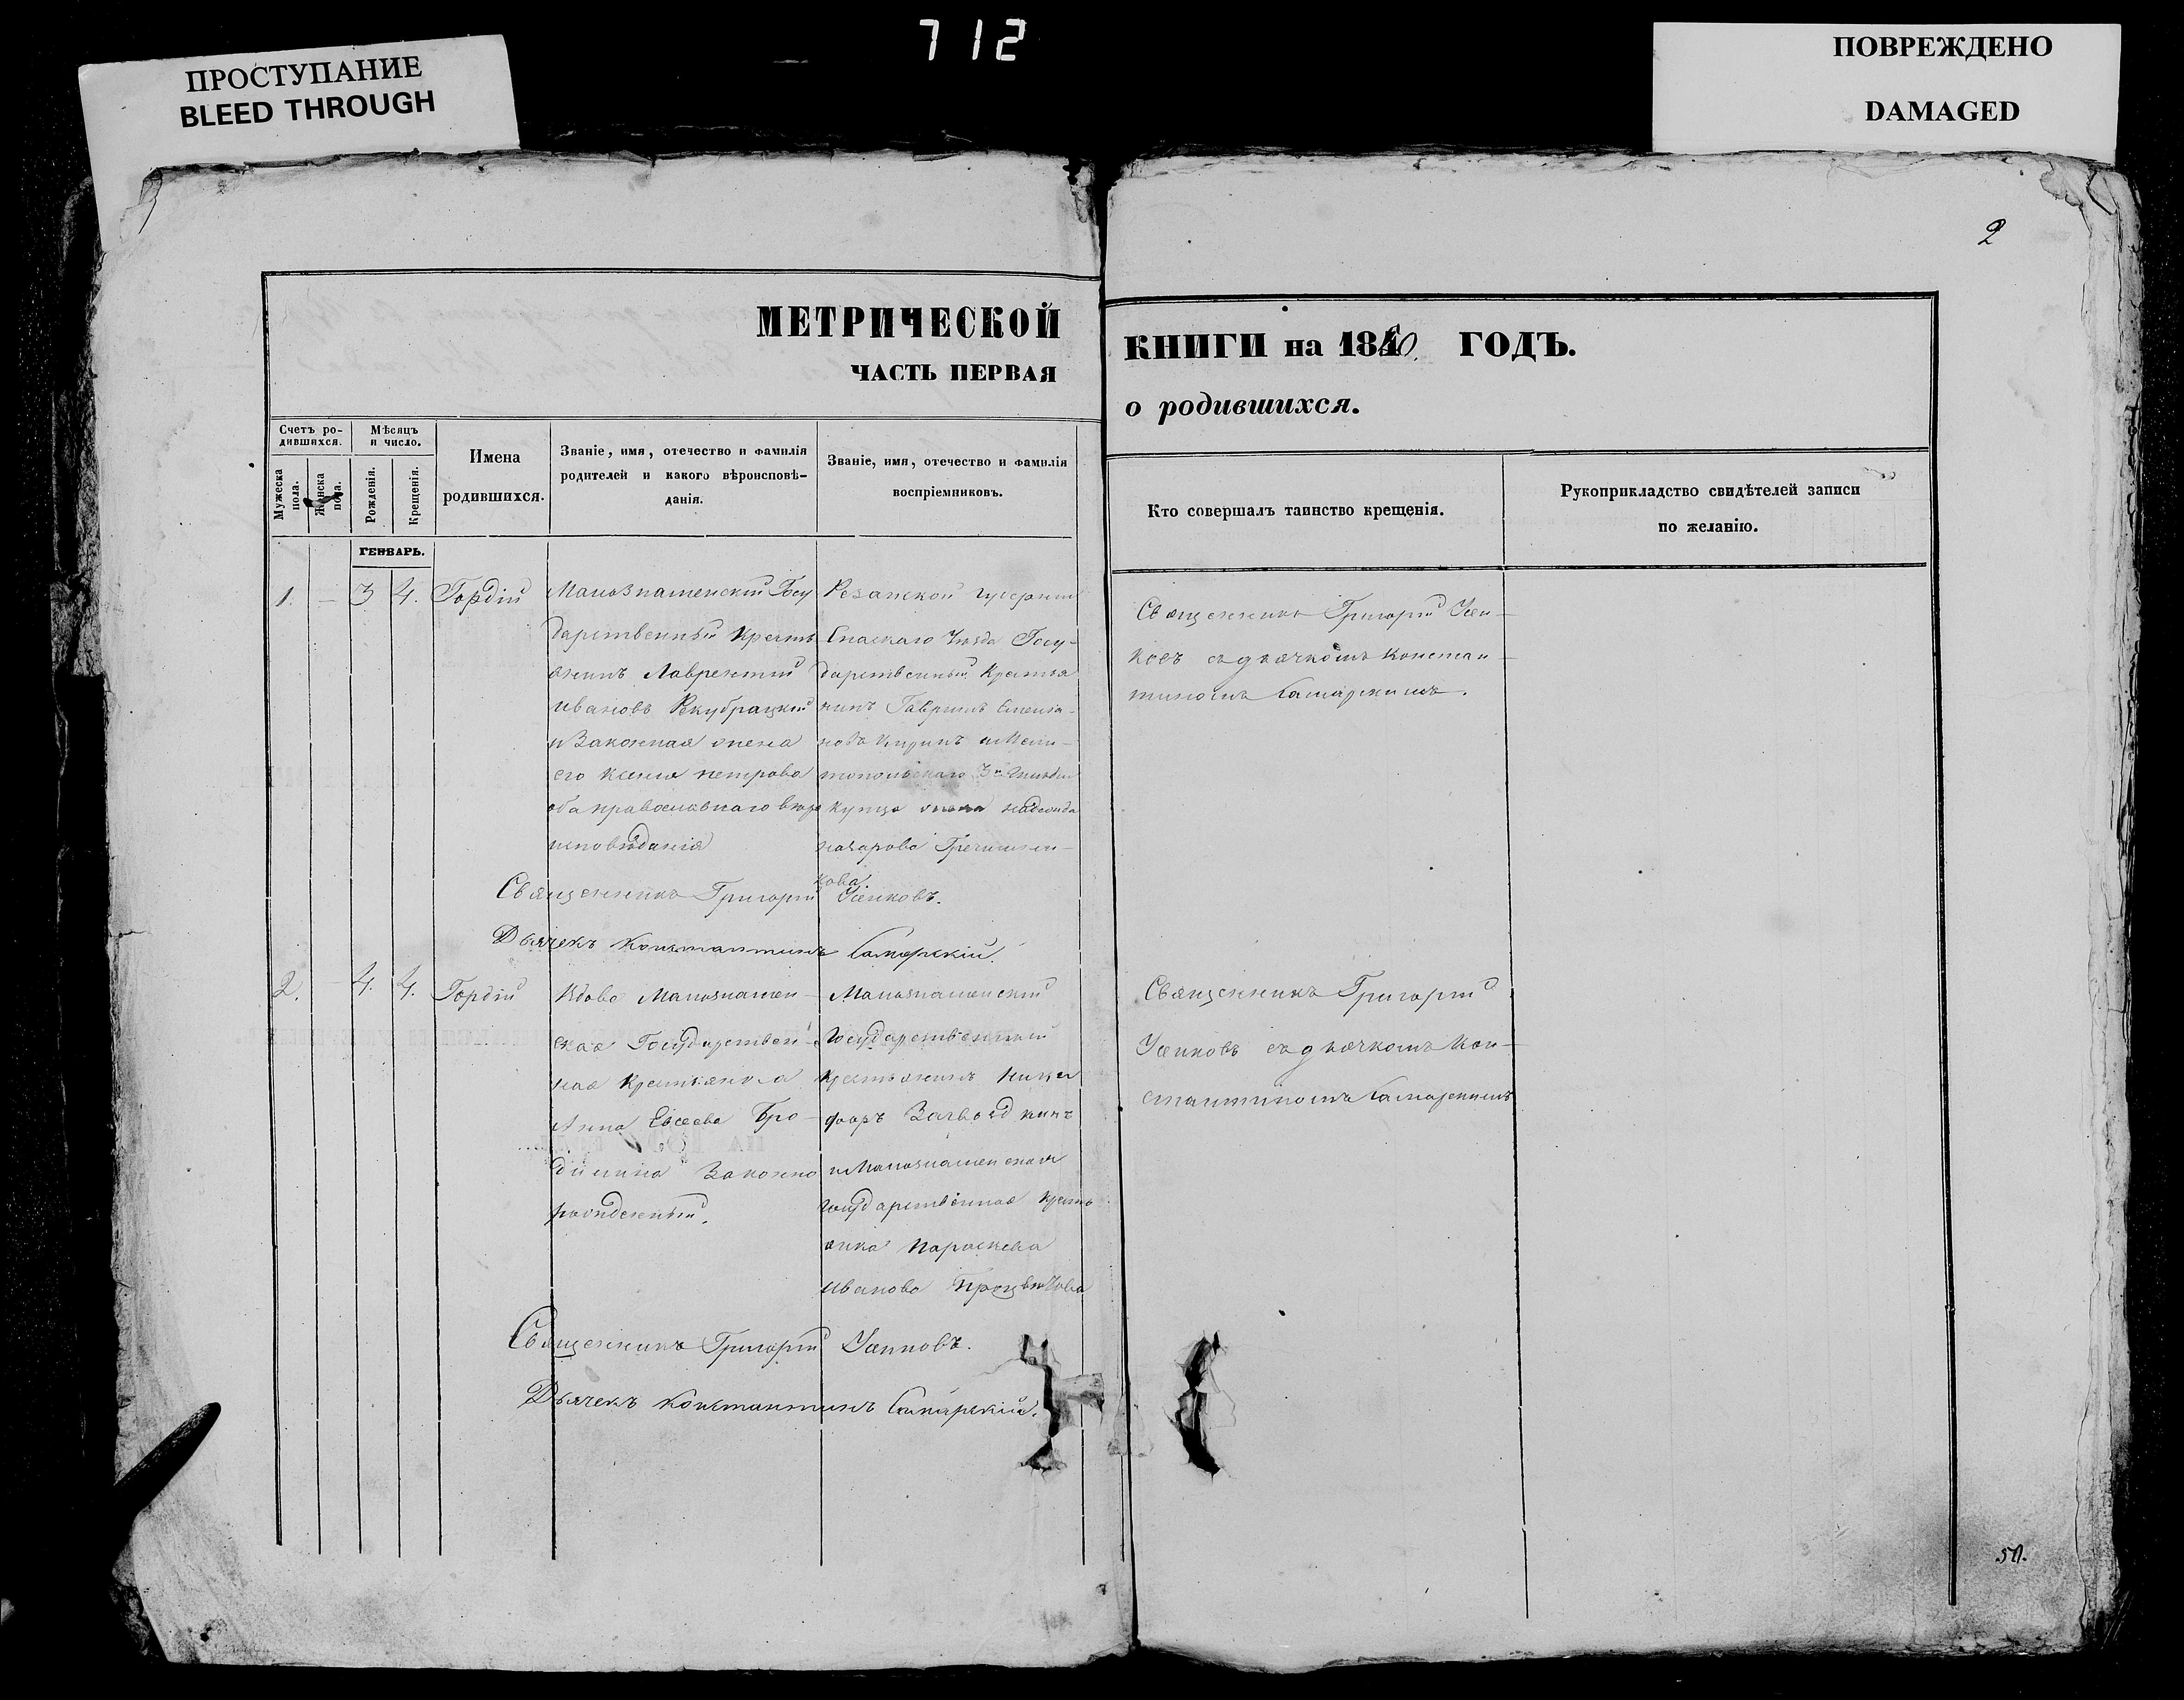 712
ПРОСТУПАНИЕ
BLEED THROUGH
ПОВРЕЖДЕНО
DAMAGED
2
МЕТРИЧЕСКОЙ
ЧАСТЬ ПЕРВАЯ
КНИГИ на 1860. ГОДЪ.
о родившихся.
Счетъ ро-
дившихся.
Мужеска пола.
Женска пола.
Мѣсяцъ
и число.
Рожденія.
Крещенія.
Имена
родившихся.
Званіе, имя, отечество и фамилія
родителей и какого вѣроисповѣ-
данія.
Званіе, имя, отечество и фамилія
воспріемниковъ.
Кто совершалъ таинство крещенія.
Рукоприкладство свидѣтелей записи
по желанію.
ГЕНВАРЬ.
1. — 3 4. Гордій
Малознаменскій Госу
дарственный Кресть
янинъ Лаврентій
Ивановъ
и Законная жена
его Ксенія Петрова
оба православнаго вѣро
исповѣданія
Резанской губерніи
Спаскаго Уѣзда Госу-
дарственный Крестья
нинъ Гавріилъ Емелья-
новъ и Мели-
топольскаго 3й Гильдіи
Купца жена Надежда
Назарова Гречишни-
кова
Священникъ Григорій Усик-
ковъ съ дьячкомъ Констан-
тиномъ Самарскимъ.
Священникъ Григорій Усиковъ.
Дьячекъ Константинъ Самарскій.
2. 4. 4. Гордій
Вдова Малознамен-
ская Государствен-
ная Крестьянка
Анна Евсеева Бро-
дилина Законно
рожденный.
Малознаменскій
Государственный
Крестьянинъ Ники
форъ
и Малознаменская
Государственная Кресть
янка Параскева
Иванова
Священникъ Григорій
Усиковъ съ дьячкомъ Кон-
стантиномъ Самарскимъ
Священникъ Григорій Усиковъ.
Дьячекъ Константинъ Самарскій.